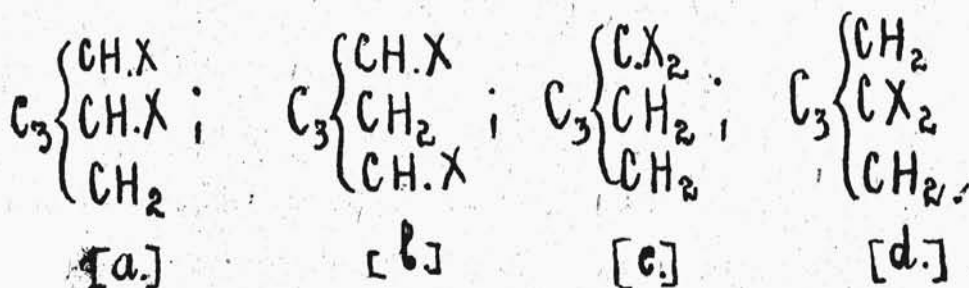 C₃ { CH.X CH.X CH₂ ; C₃ { CH.X CH₂ CH.X ; C₃ { C.X₂ CH₂ CH₂ ; C₃ { CH₂ CX₂ CH₂.
[a.] [b] [c.] [d.]